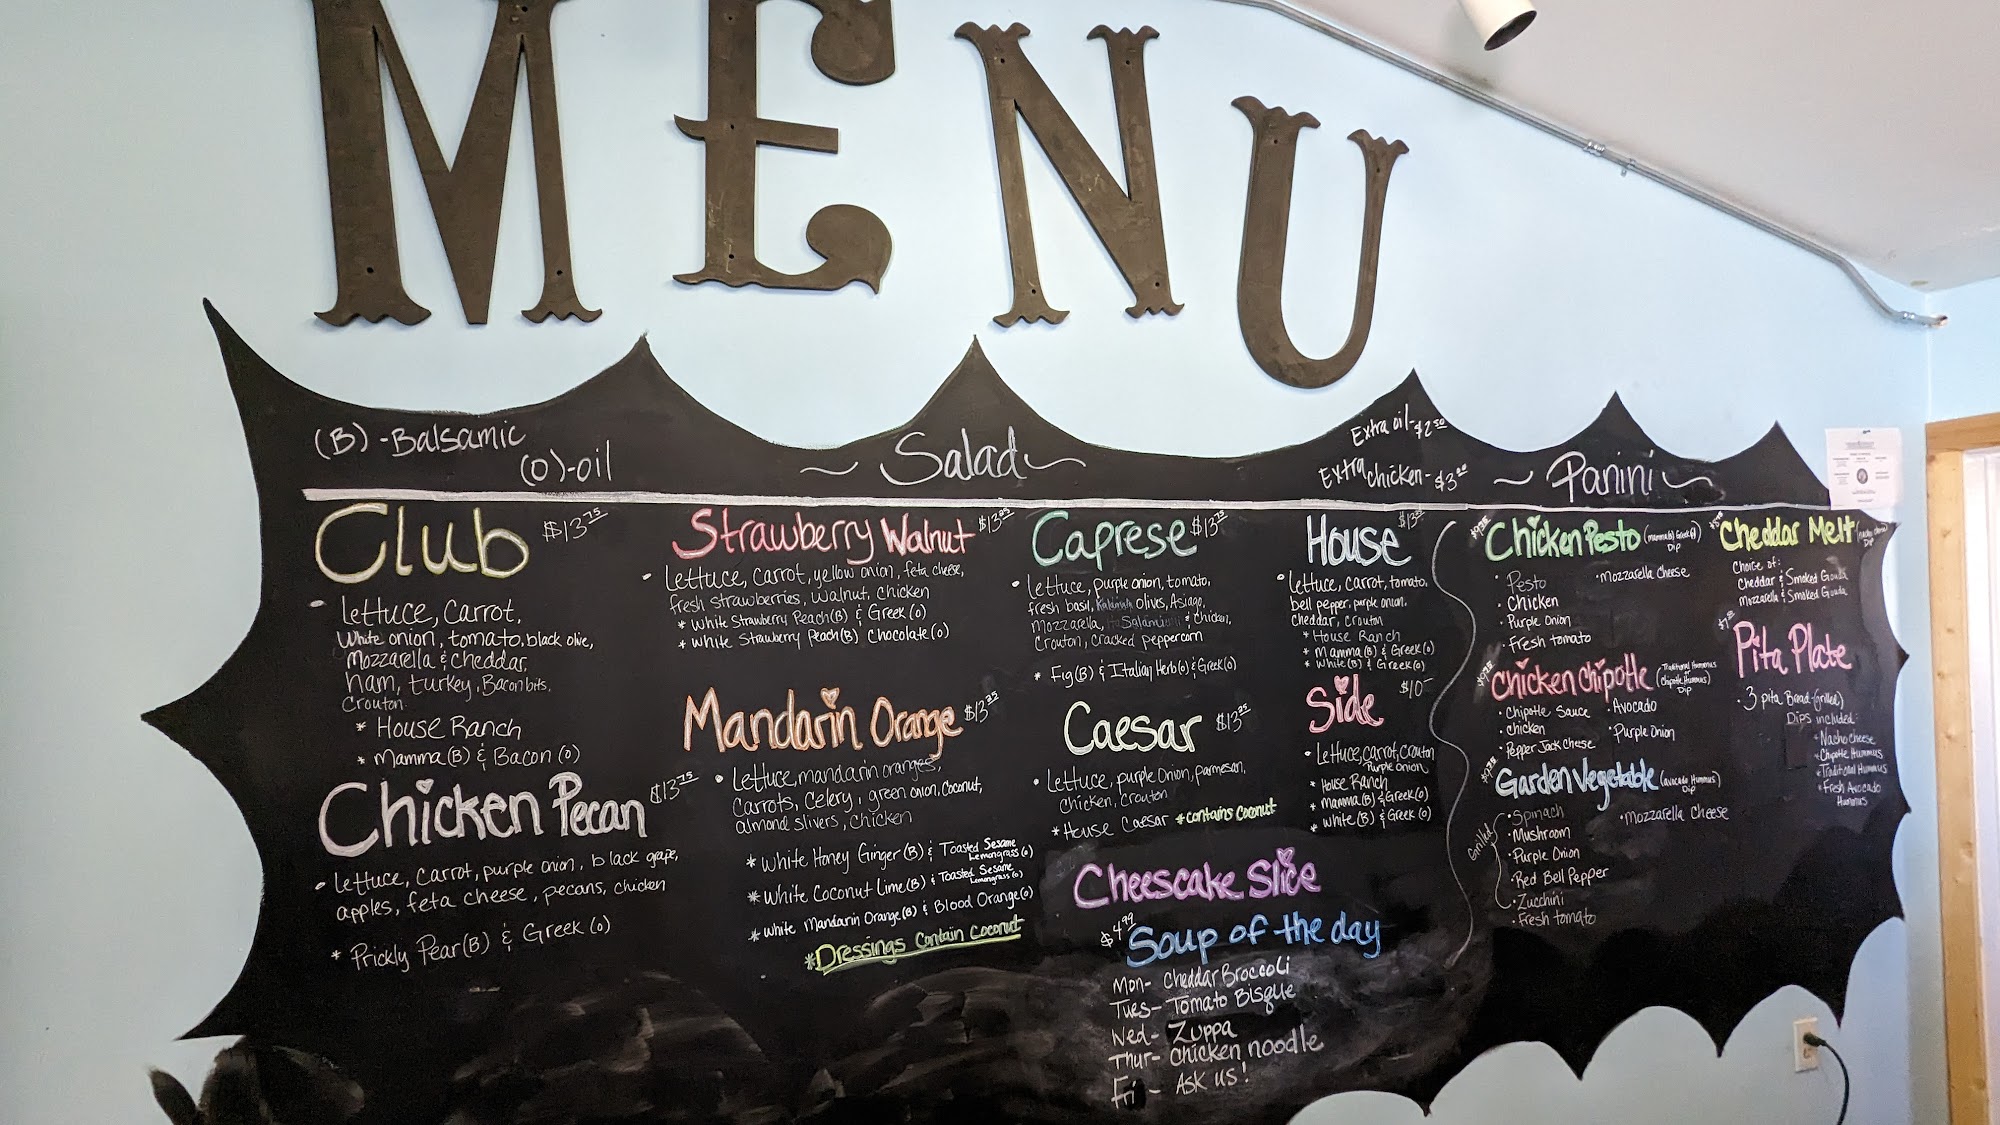 MENU
(B) - Balsamic
(O) - oil
~ Salad ~
Extra oil - $2.50
Extra chicken - $3.00
~ Panini ~
Club $13.75
• lettuce, carrot,
white onion, tomato, black olive,
Mozzarella & cheddar,
ham, turkey, Bacon bits,
Crouton.
* House Ranch
* Mamma (B) & Bacon (O)
Chicken Pecan $13.75
• lettuce, carrot, purple onion, black grape,
apples, feta cheese, pecans, chicken
* Prickly Pear (B) & Greek (O)
Strawberry Walnut
• Lettuce, carrot, yellow onion, feta cheese,
fresh strawberries, walnut, chicken
* White Strawberry Peach (B) & Greek (O)
* White Strawberry Peach (B) Chocolate (O)
Mandarin Orange
• Lettuce, mandarin oranges,
Carrots, Celery, green onion, Coconut,
almond slivers, chicken
* White Honey Ginger (B) & Toasted Sesame
Lemongrass (O)
* White Coconut Lime (B) & Toasted Sesame
Lemongrass (O)
* White Mandarin Orange (B) & Blood Orange (O)
* Dressings Contain Coconut
Caprese $13.75
• Lettuce, purple onion, tomato,
fresh basil, Kalamata olives, Asiago,
Mozzarella, Salami & chicken,
Crouton, cracked peppercorn
* Fig (B) & Italian Herb (O) & Greek (O)
Caesar
• Lettuce, purple onion, parmesan,
Chicken, crouton
* House Caesar * contains coconut
Cheescake Slice
$4.99
Soup of the day
Mon- Cheddar Broccoli
Tues- Tomato Bisque
Wed- Zuppa
Thur- Chicken noodle
Fri - Ask us!
House
• Lettuce, carrot, tomato,
bell pepper, purple onion,
cheddar, crouton
* House Ranch
* Mamma (B) & Greek (O)
* White (B) & Greek (O)
Side $10
• Lettuce, carrot, crouton
Purple onion
* House Ranch
* Mamma (B) & Greek (O)
* White (B) & Greek (O)
Chicken Pesto (mamma (B) Greek (O))
Dip
• Pesto
• Mozzarella Cheese
• Chicken
• Purple Onion
• Fresh tomato
Chicken Chipotle (Traditional Hummus
Chipotle Hummus)
Dip
• Chipotle Sauce
• Avocado
• Chicken
• Purple Onion
• Pepper Jack Cheese
Garden Vegetable (avocado Hummus)
Dip
Grilled
• Spinach
• Mozzarella Cheese
• Mushroom
• Purple Onion
• Red Bell Pepper
• Zucchini
• Fresh tomato
Cheddar Melt (nacho cheese)
Dip
Choice of:
Cheddar & Smoked Gouda
Mozzarella & Smoked Gouda
Pita Plate
• 3 pita Bread (grilled)
Dips included:
* Nacho Cheese
* Chipotle Hummus
* Traditional Hummus
* Fresh Avocado
Hummus